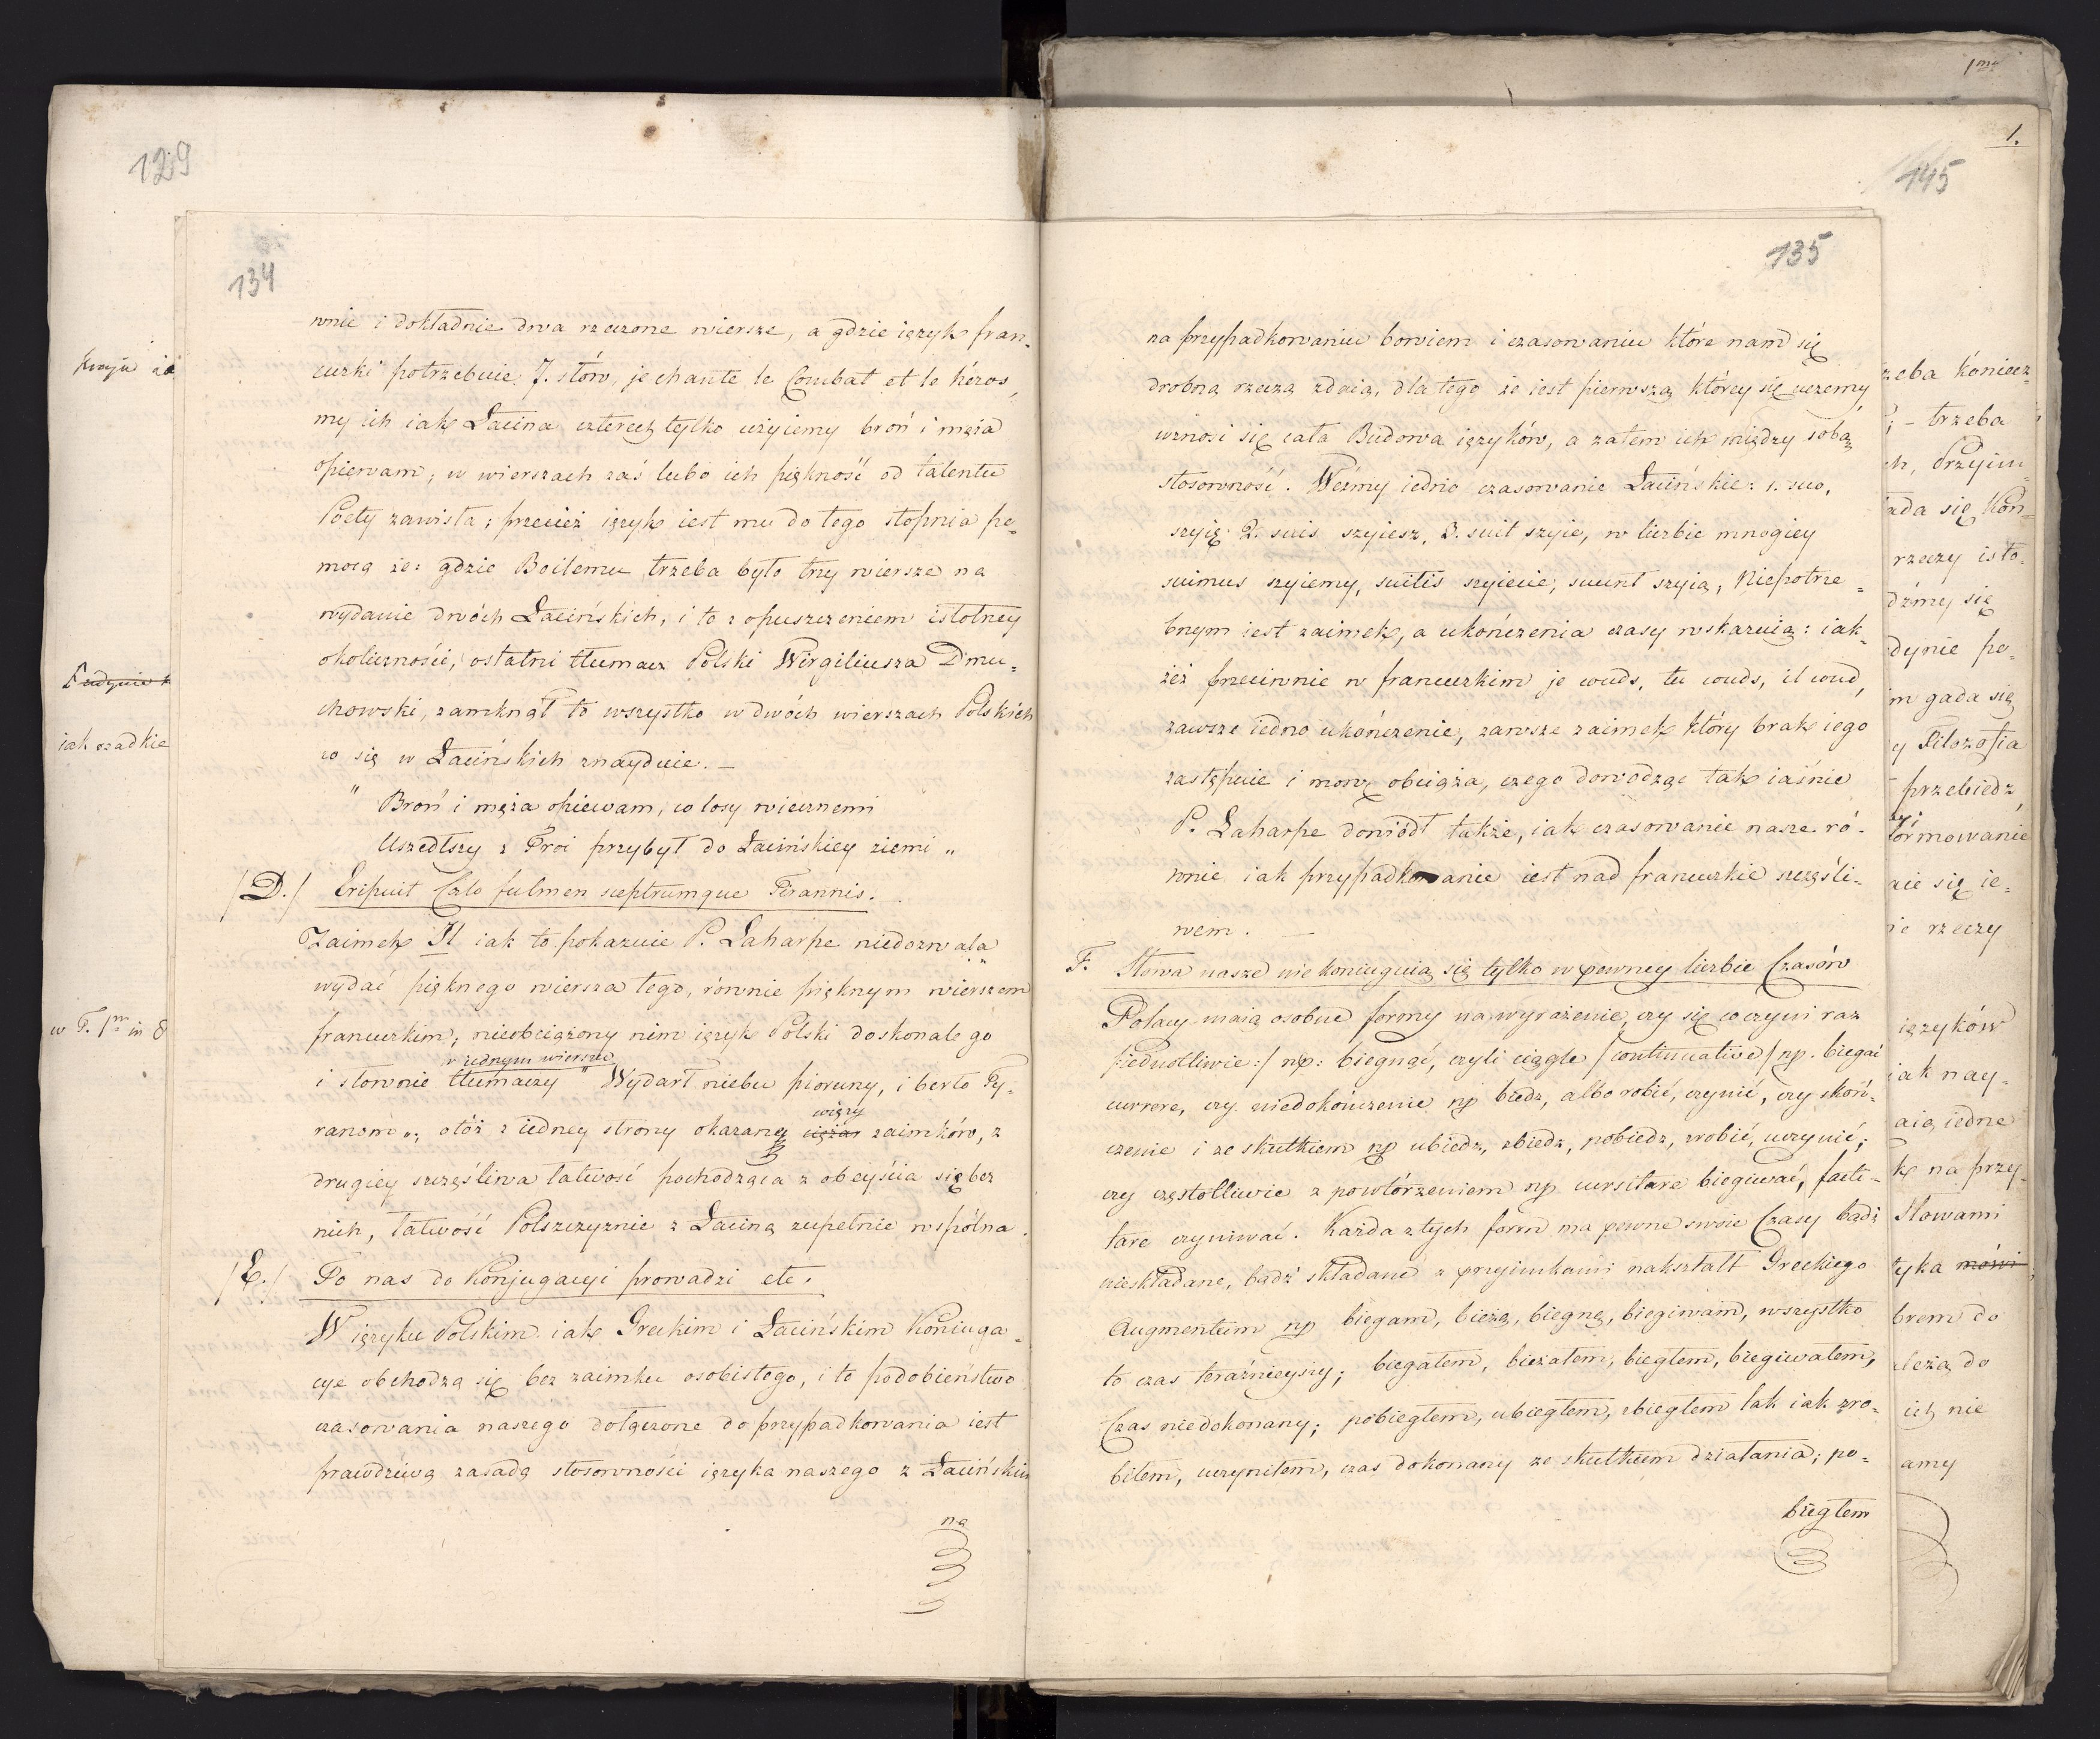 129
134
wnie i dokładnie dwa rzeczone wiersze, a gdzie ięzyk fran-
cuzki potrzebuie 7. słów, je chante le Combat et le héros,
my ich iak Łacina cztérech tylko użyiemy broń i męża
opiewam; w wierszach zaś lubo ich piękność od talentu
Poety zawisła; przecież ięzyk iest mu do tego stopnia po-
mocą że: gdzie Boilemu trzeba było trzy wiersze na
wydanie dwóch Łacińskich, i to z opuszczeniem istotney
okoliczności, ostatni tłumacz Polski Wirgiliusza Dmu-
chowski, zamknął to wszystko w dwóch wierszach Polskich
co się w Łacińskich znayduie. —
" Broń i męża opiewam, co losy wiecznemi
Uszedłszy z Troi przybył do Łacińskiey ziemi „
/D./ Eripuit Cælo fulmen sceptrumque Tirannis. —
Zaimek Il iak to pokazuie P. Laharpe niedozwala
wydać pięknego wiersza tego, równie pięknym wierszem
francuzkim, nieobciążony nim ięzyk Polski doskonale go
w iednym wierszu
i słownie tłumaczy " Wydarł niebu pioruny, i berło Ty-
więzy
ranom „; otóż z iedney strony okazany ciężar zaimków, z
drugiey szczęśliwa łatwość pochodząca z obeyścia się bez
nich, łatwość Polszczyznie z Łaciną zupełnie wspólna.
/E./ To nas do Konjugacyi prowadzi etc.
W ięzyku Polskim iak Greckim i Łacińskim Koniuga-
cye obchodzą się bez zaimku osobistego, i to podobieństwo
czasowania naszego dołączone do przypadkowania iest
prawdziwą zasadą stosowności ięzyka naszego z Łacińskim
na
kraju i a
iak rzadkie
w T. 1m in 8
1m
1.
145
135
na przypadkowaniu bowiem i czasowaniu które nam się
drobną rzeczą zdaią, dla tego że iest pierwszą którey się uczemy,
wznosi się cała Budowa ięzyków, a zatem ich między sobą
stosowność. Weźmy iedno czasowanie Łacińskie: 1. suo,
szyię 2. suis szyiesz, 3. suit szyie, w liczbie mnogiey
suimus szyiemy, suitis szyiecie, suunt szyią, Niepotrze-
bnym iest zaimek, a ukończenia czasy wskazuią: iak-
żeż przeciwnie w francuzkim je couds, tu couds, il coud,
zawsze iedno ukończenie, zawsze zaimek który brak iego
zastępuie i mowę obciąża, czego dowodząc tak iaśnie
P. Laharpe dowiódł także, iak czasowanie nasze ró-
wnie iak przypadkowanie iest nad francuzkie szczęśli-
wem. —
F. Słowa nasze nie koniuguią się tylko w pewney liczbie Czasów
Polacy maią osobne formy na wyrażenie, czy się co czyni raz
/iednotliwie:/ np: biegnąć, czyli ciągle /continuative/ np. biegać
currere, czy niedokończenie np biedz, albo robić, czynić, czy skoń-
czenie i ze skutkiem np ubiedz, zbiedz, pobiedz, zrobić, uczynić;
czy częstotliwie z powtórzeniem np cursitare biegiwać, facti-
tare czyniwać. Każda z tych form ma pewne swoie Czasy bądź
nieskładane, bądź składane z przyimkami nakształt Greckiego
Augmentum np biegam, bieżę, biegnę, biegiwam, wszystko
to czas teraźnieyszy; biegałem, bieżałem, biegłem, biegiwałem,
Czas niedokonany; pobiegłem, ubiegłem, zbiegłem tak iak zro-
biłem, uczyniłem, czas dokonany ze skutkiem działania; po-
biegłem
zeba koniecz-
– trzeba
ch, Przyim
ada się Kon-
rzeczy isto-
dźmy się
dynie po-
m gada się
y Filozofia
– przebiedz
formowanie
aie się ie-
ie rzeczy
ięzyków
iak nay-
aią iedne
kę na przy-
Słowami
tyka mówi
brem do
leżą do
ich nie
amy